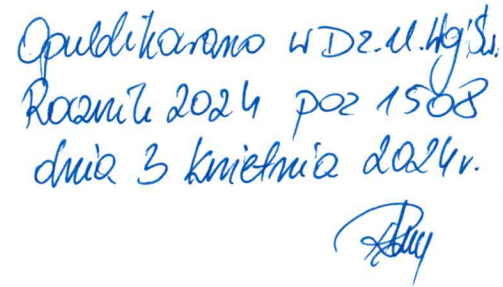 Opublikowano w Dz.U.Woj.Św.
Rocznik 2024 poz 1508
dnia 3 kwietnia 2024r.